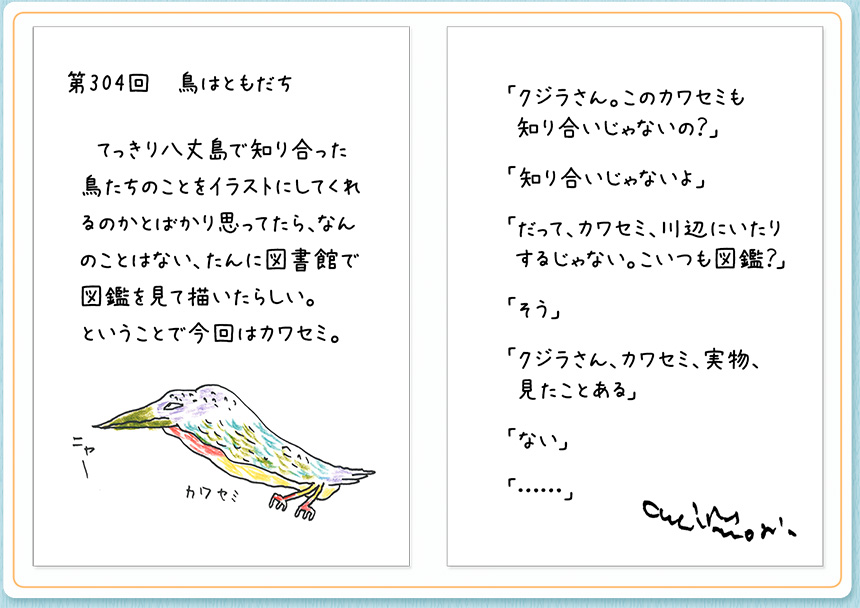 第304回　鳥はともだち
てっきり八丈島で知り合った
鳥たちのことをイラストにしてくれ
るのかとばかり思ってたら、なん
のことはない、たんに図書館で
図鑑を見て描いたらしい。
ということで今回はカワセミ。
ニャー
カワセミ
「クジラさん。このカワセミも
知り合いじゃないの?」
「知り合いじゃないよ」
「だって、カワセミ、川辺にいたり
するじゃない。こいつも図鑑?」
「そう」
「クジラさん、カワセミ、実物、
見たことある」
「ない」
「……」